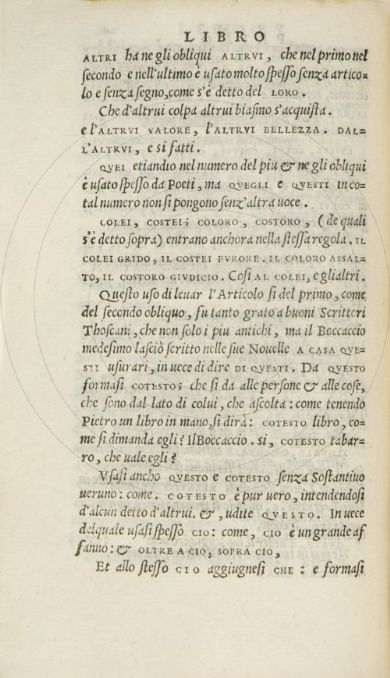 LIBRO
ALTRI ha ne gli obliqui ALTRVI, che nel primo nel
secondo e nell'ultimo è usato molto spesso senza artico-
lo e senza segno, come s'è detto del LORO.
Che d'altrui colpa altrui biasmo s'acquista.
e l'ALTRVI VALORE, l'ALTRVI BELLEZZA. DAL-
L'ALTRVI, e si fatti.
QVEI etiandio nel numero del piu & ne gli obliqui
è usato spesso da Poeti, ma QVEGLI e QVESTI in co-
tal numero non si pongono senz'altra uoce.
COLEI, COSTEI; COLORO, COSTORO, (de quali
s'è detto sopra) entrano anchora nella stessa regola. IL
COLEI GRIDO, IL COSTEI FVRORE. IL COLORO ASSAL-
TO, IL COSTORO GIVDICIO. Cosi AL COLEI, e gli altri.
Questo uso di leuar l'Articolo si del primo, come
del secondo obliquo, fu tanto grato a buoni Scrittori
Thoscani, che non solo i piu antichi, ma il Boccaccio
medesimo lasciò scritto nelle sue Nouelle A CASA QVE-
STI usurari, in uece di dire DI QVESTI. Da QVESTO
formasi COTESTO; che si da alle persone & alle cose,
che sono dal lato di colui, che ascolta: come tenendo
Pietro un libro in mano, si dirà: COTESTO libro, co-
me si dimanda egli? Il Boccaccio. si, COTESTO tabar-
ro, che uale egli?
Vsasi ancho QVESTO e COTESTO senza Sostantiuo
ueruno: come. COTESTO è pur uero, intendendosi
d'alcun detto d'altrui. &, udite QVESTO. In uece
del quale usasi spesso CIO: come, CIO è un grande af
fanno: & OLTRE A CIO, SOPRA CIO,
Et allo stesso CIO aggiugnesi CHE: e formasi